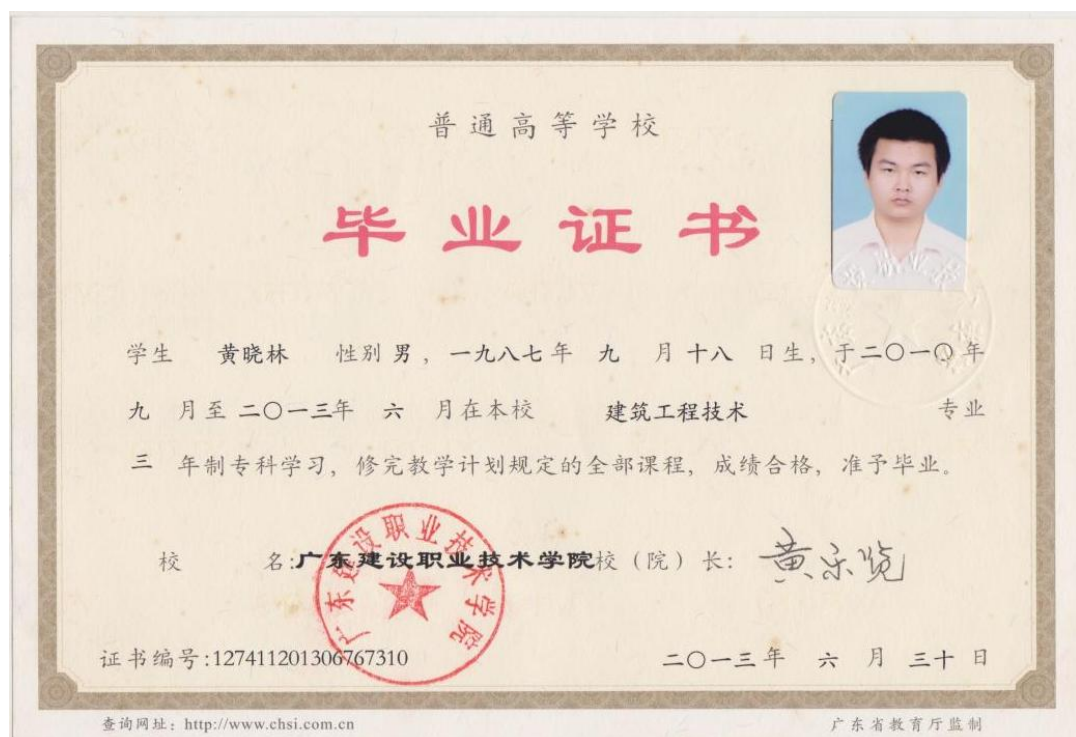 普通高等学校
毕业证书
学生 黄晓林 性别 男，一九八七年 九 月十八 日生，于二〇一〇年
九 月至二〇一三年 六 月在本校 建筑工程技术 专业
三 年制专科学习，修完教学计划规定的全部课程，成绩合格，准予毕业。
校 名:广东建设职业技术学院校（院）长：
广东建设职业技术学院
证书编号:127411201306767310 二〇一三年 六 月 三十 日
查询网址：http://www.chsi.com.cn 广东省教育厅监制